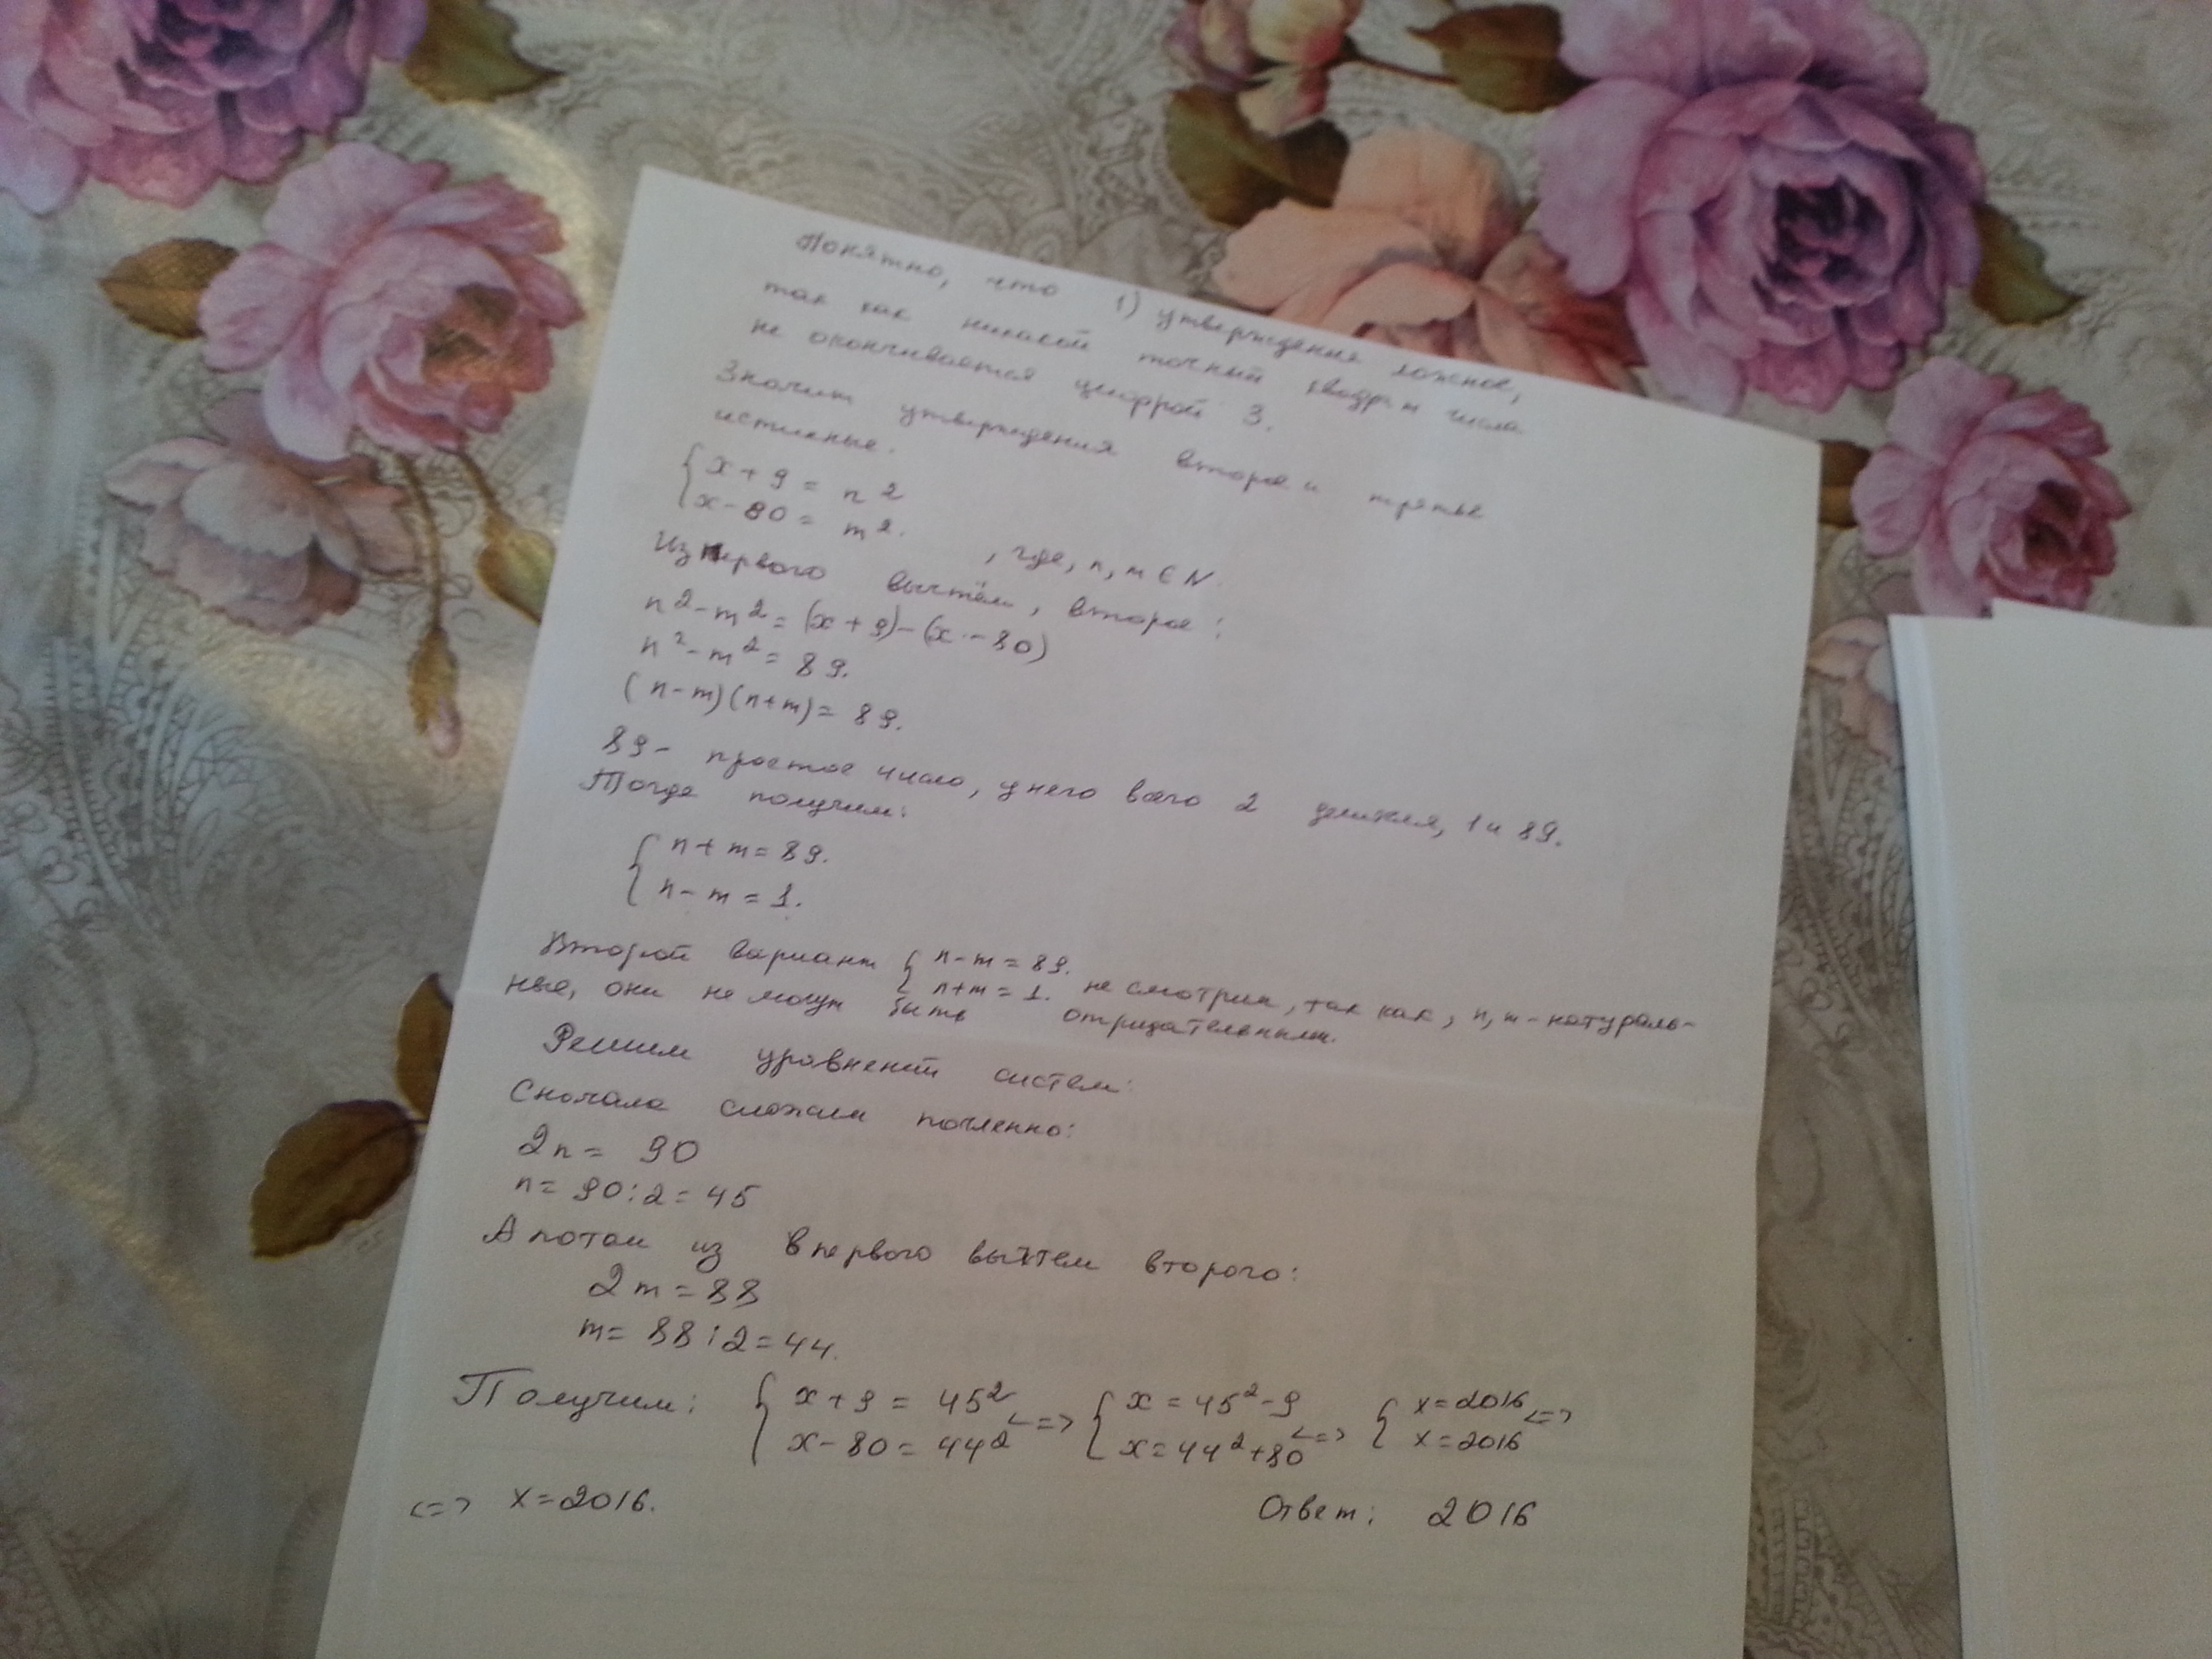 Понятно, что 1) утверждение ложное,
так как никакой точный квадрат числа
не оканчивается цифрой 3.
Значит утверждения второе и третье
истинные.
{ x + 9 = n²
x - 80 = m². , где, n, m ∈ N.
Из первого вычтем, второе:
n² - m² = (x + 9) - (x - 80)
n² - m² = 89.
(n - m)(n + m) = 89.
89 - простое число, у него всего 2 делителя, 1 и 89.
Тогда получим:
{ n + m = 89.
n - m = 1.
Второй вариант { n - m = 89.
n + m = 1. не смотрим, так как, n, m - натураль-
ные, они не могут быть отрицательными.
Решим уравнений систем:
Сначала сложим почленно:
2n = 90
n = 90 : 2 = 45
А потом из первого вычтем второго:
2m = 88
m = 88 : 2 = 44.
Получим: { x + 9 = 45² <=> { x = 45² - 9 <=> { x = 2016 <=>
x - 80 = 44² x = 44² + 80 x = 2016
<=> x = 2016. Ответ: 2016